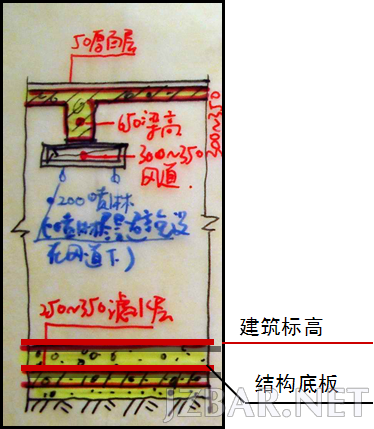 50厚面层
650梁高
300~350
风道
300~350
200喷淋
在风道下)
250~350滤水层
建筑标高
结构底板
JZBAR.NET